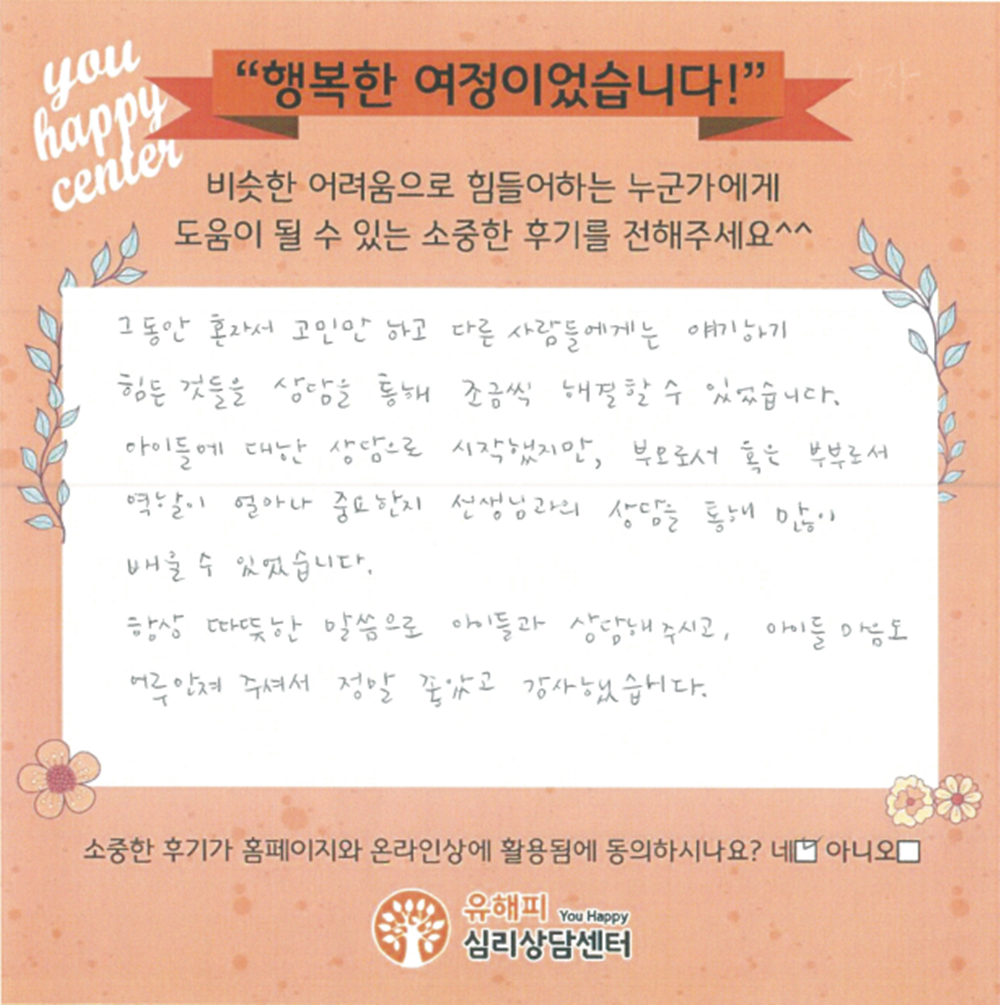 you
happy
center
“행복한 여정이었습니다!”
비슷한 어려움으로 힘들어하는 누군가에게
도움이 될 수 있는 소중한 후기를 전해주세요^^
그동안 혼자서 고민만 하고 다른 사람들에게는 얘기하기
힘든 것들을 상담을 통해 조금씩 해결할 수 있었습니다.
아이들에 대한 상담으로 시작했지만, 부모로서 혹은 부부로서
역할이 얼마나 중요한지 선생님과의 상담을 통해 많이
배울 수 있었습니다.
항상 따뜻한 말씀으로 아이들과 상담해 주시고, 아이들 마음도
어루만져 주셔서 정말 좋았고 감사했습니다.
소중한 후기가 홈페이지와 온라인상에 활용됨에 동의하시나요? 네 아니오
유해피 You Happy
심리상담센터